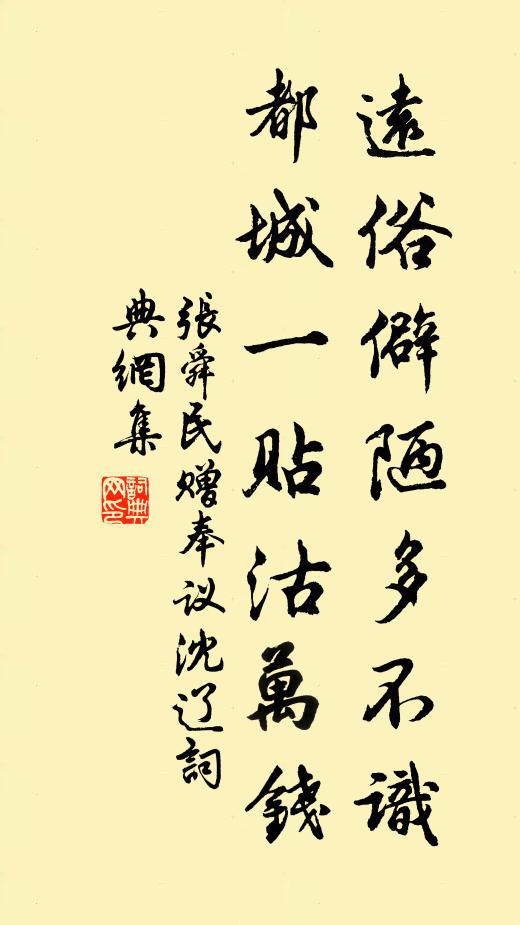 遠俗僻陋多不識
都城一貼沽萬錢
張舜民赠奉议沈辽詞
典網集
詞典網印